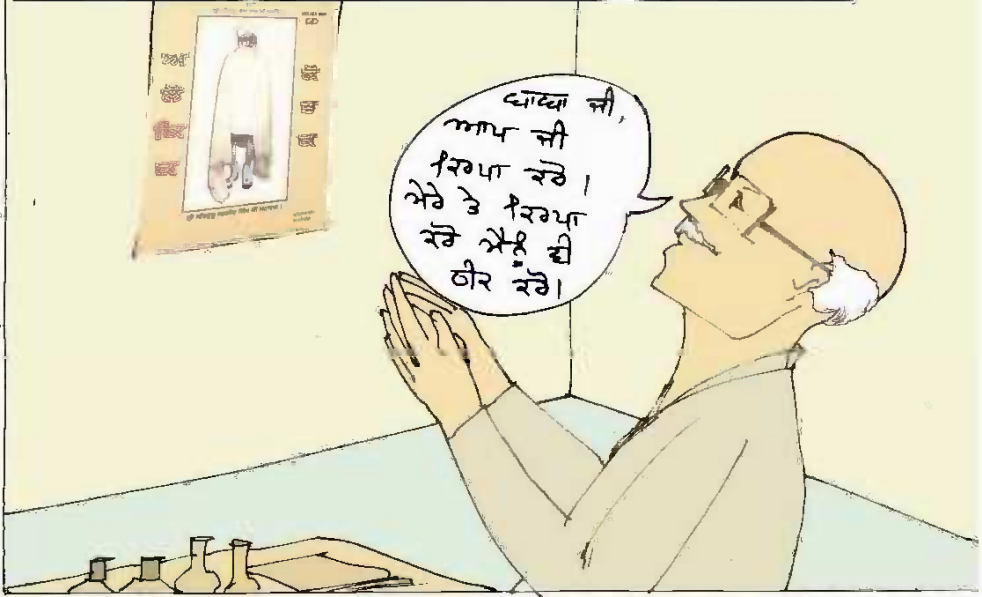 ਬਾਬਾ ਜੀ,
ਆਪ ਜੀ
ਕਿਰਪਾ ਕਰੋ।
ਮੇਰੇ ਤੇ ਕਿਰਪਾ
ਕਰੋ ਮੈਨੂੰ ਵੀ
ਠੀਕ ਕਰੋ।